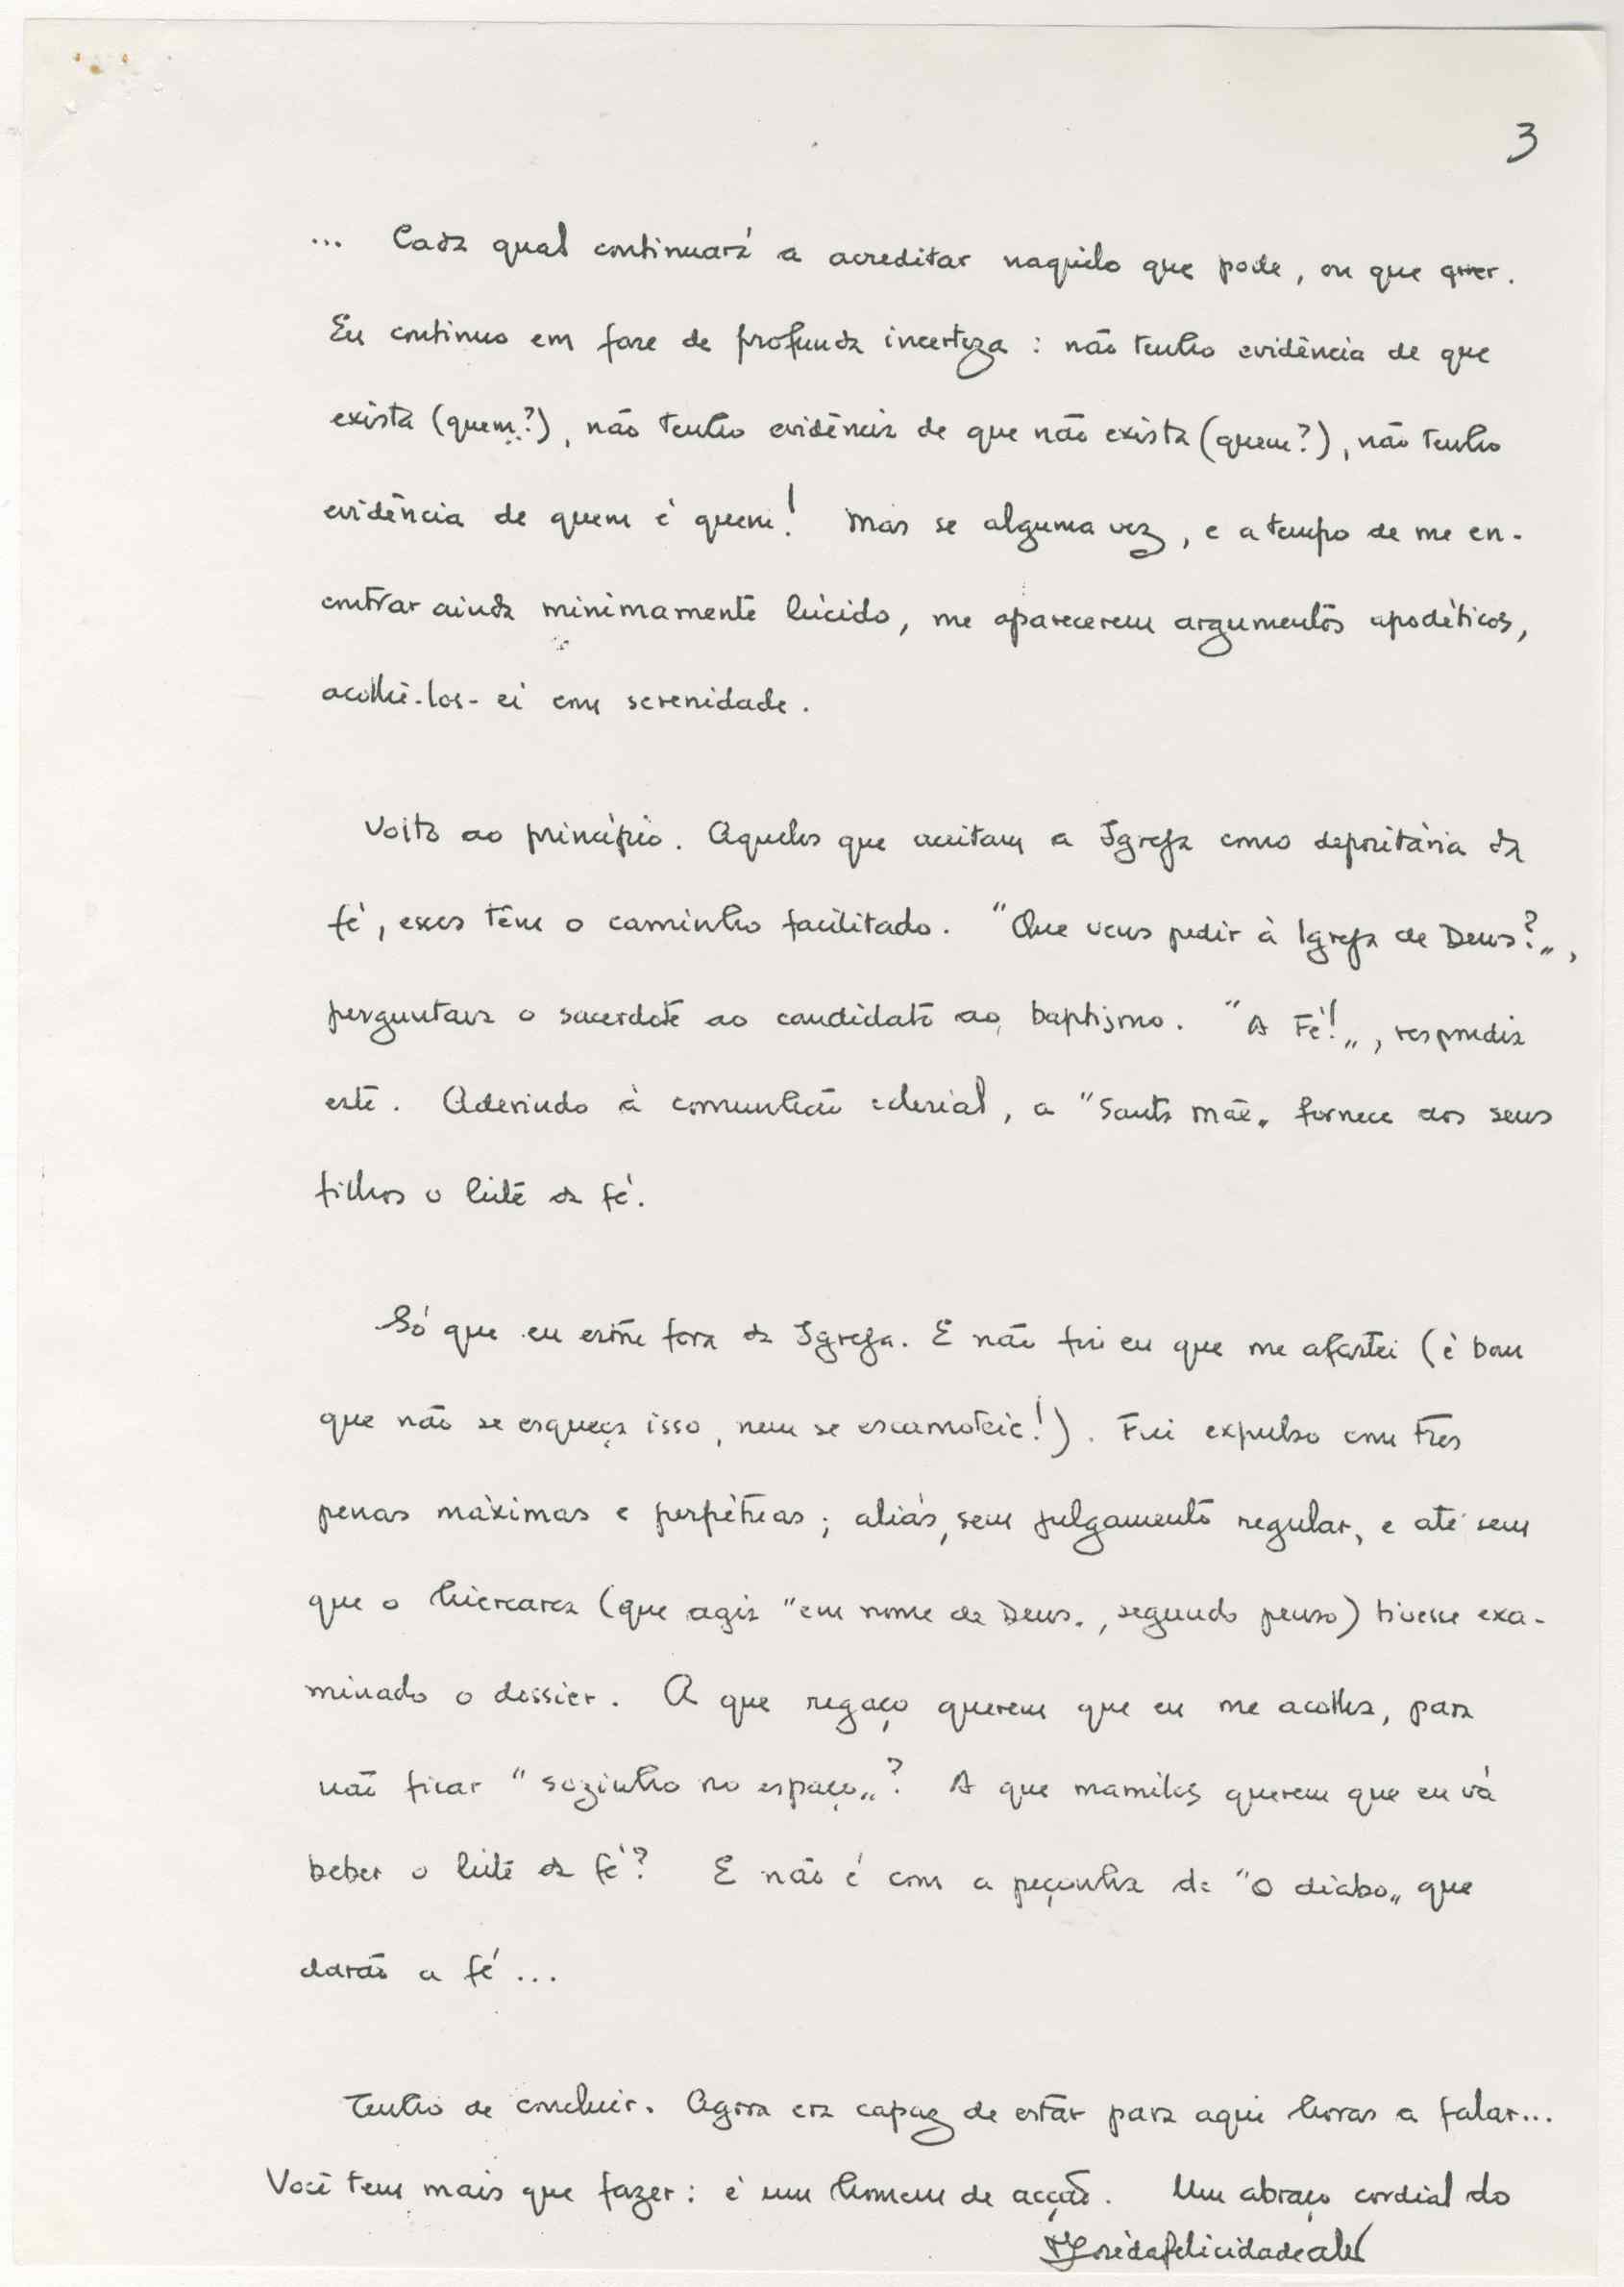 3
... Cada qual continuará a acreditar naquilo que pode, ou que quer.
Eu continuo em fase de profunda incerteza : não tenho evidência de que
exista (quem?), não tenho evidência de que não exista (quem?), não tenho
evidência de quem é quem! Mas se alguma vez, e a tempo de me en-
contrar ainda minimamente lúcido, me aparecerem argumentos apodíticos,
acolhê-los-ei com serenidade.
Volto ao princípio. Aqueles que aceitam a Igreja como depositária da
fé, esses têm o caminho facilitado. "Que vens pedir à Igreja de Deus?",
perguntava o sacerdote ao candidato ao baptismo. "A Fé!", respondia
este. Aderindo à comunhão eclesial, a "Santa Mãe" fornece aos seus
filhos o leite da fé.
Só que eu estou fora da Igreja. E não fui eu que me afastei (é bom
que não se esqueça isso, nem se escamoteie!). Fui expulso com três
penas máximas e perpétuas; aliás, sem julgamento regular, e até sem
que o hierarca (que agia "em nome de Deus", segundo penso) tivesse exa-
minado o dossier. A que regaço querem que eu me acolha, para
não ficar "sozinho no espaço"? A que mamilos querem que eu vá
beber o leite da fé? E não é com a peçonha de "O diabo" que
darão a fé ...
Tenho de concluir. Agora era capaz de estar para aqui horas a falar...
Você tem mais que fazer: é um homem de acção. Um abraço cordial do
José da Felicidade Alves